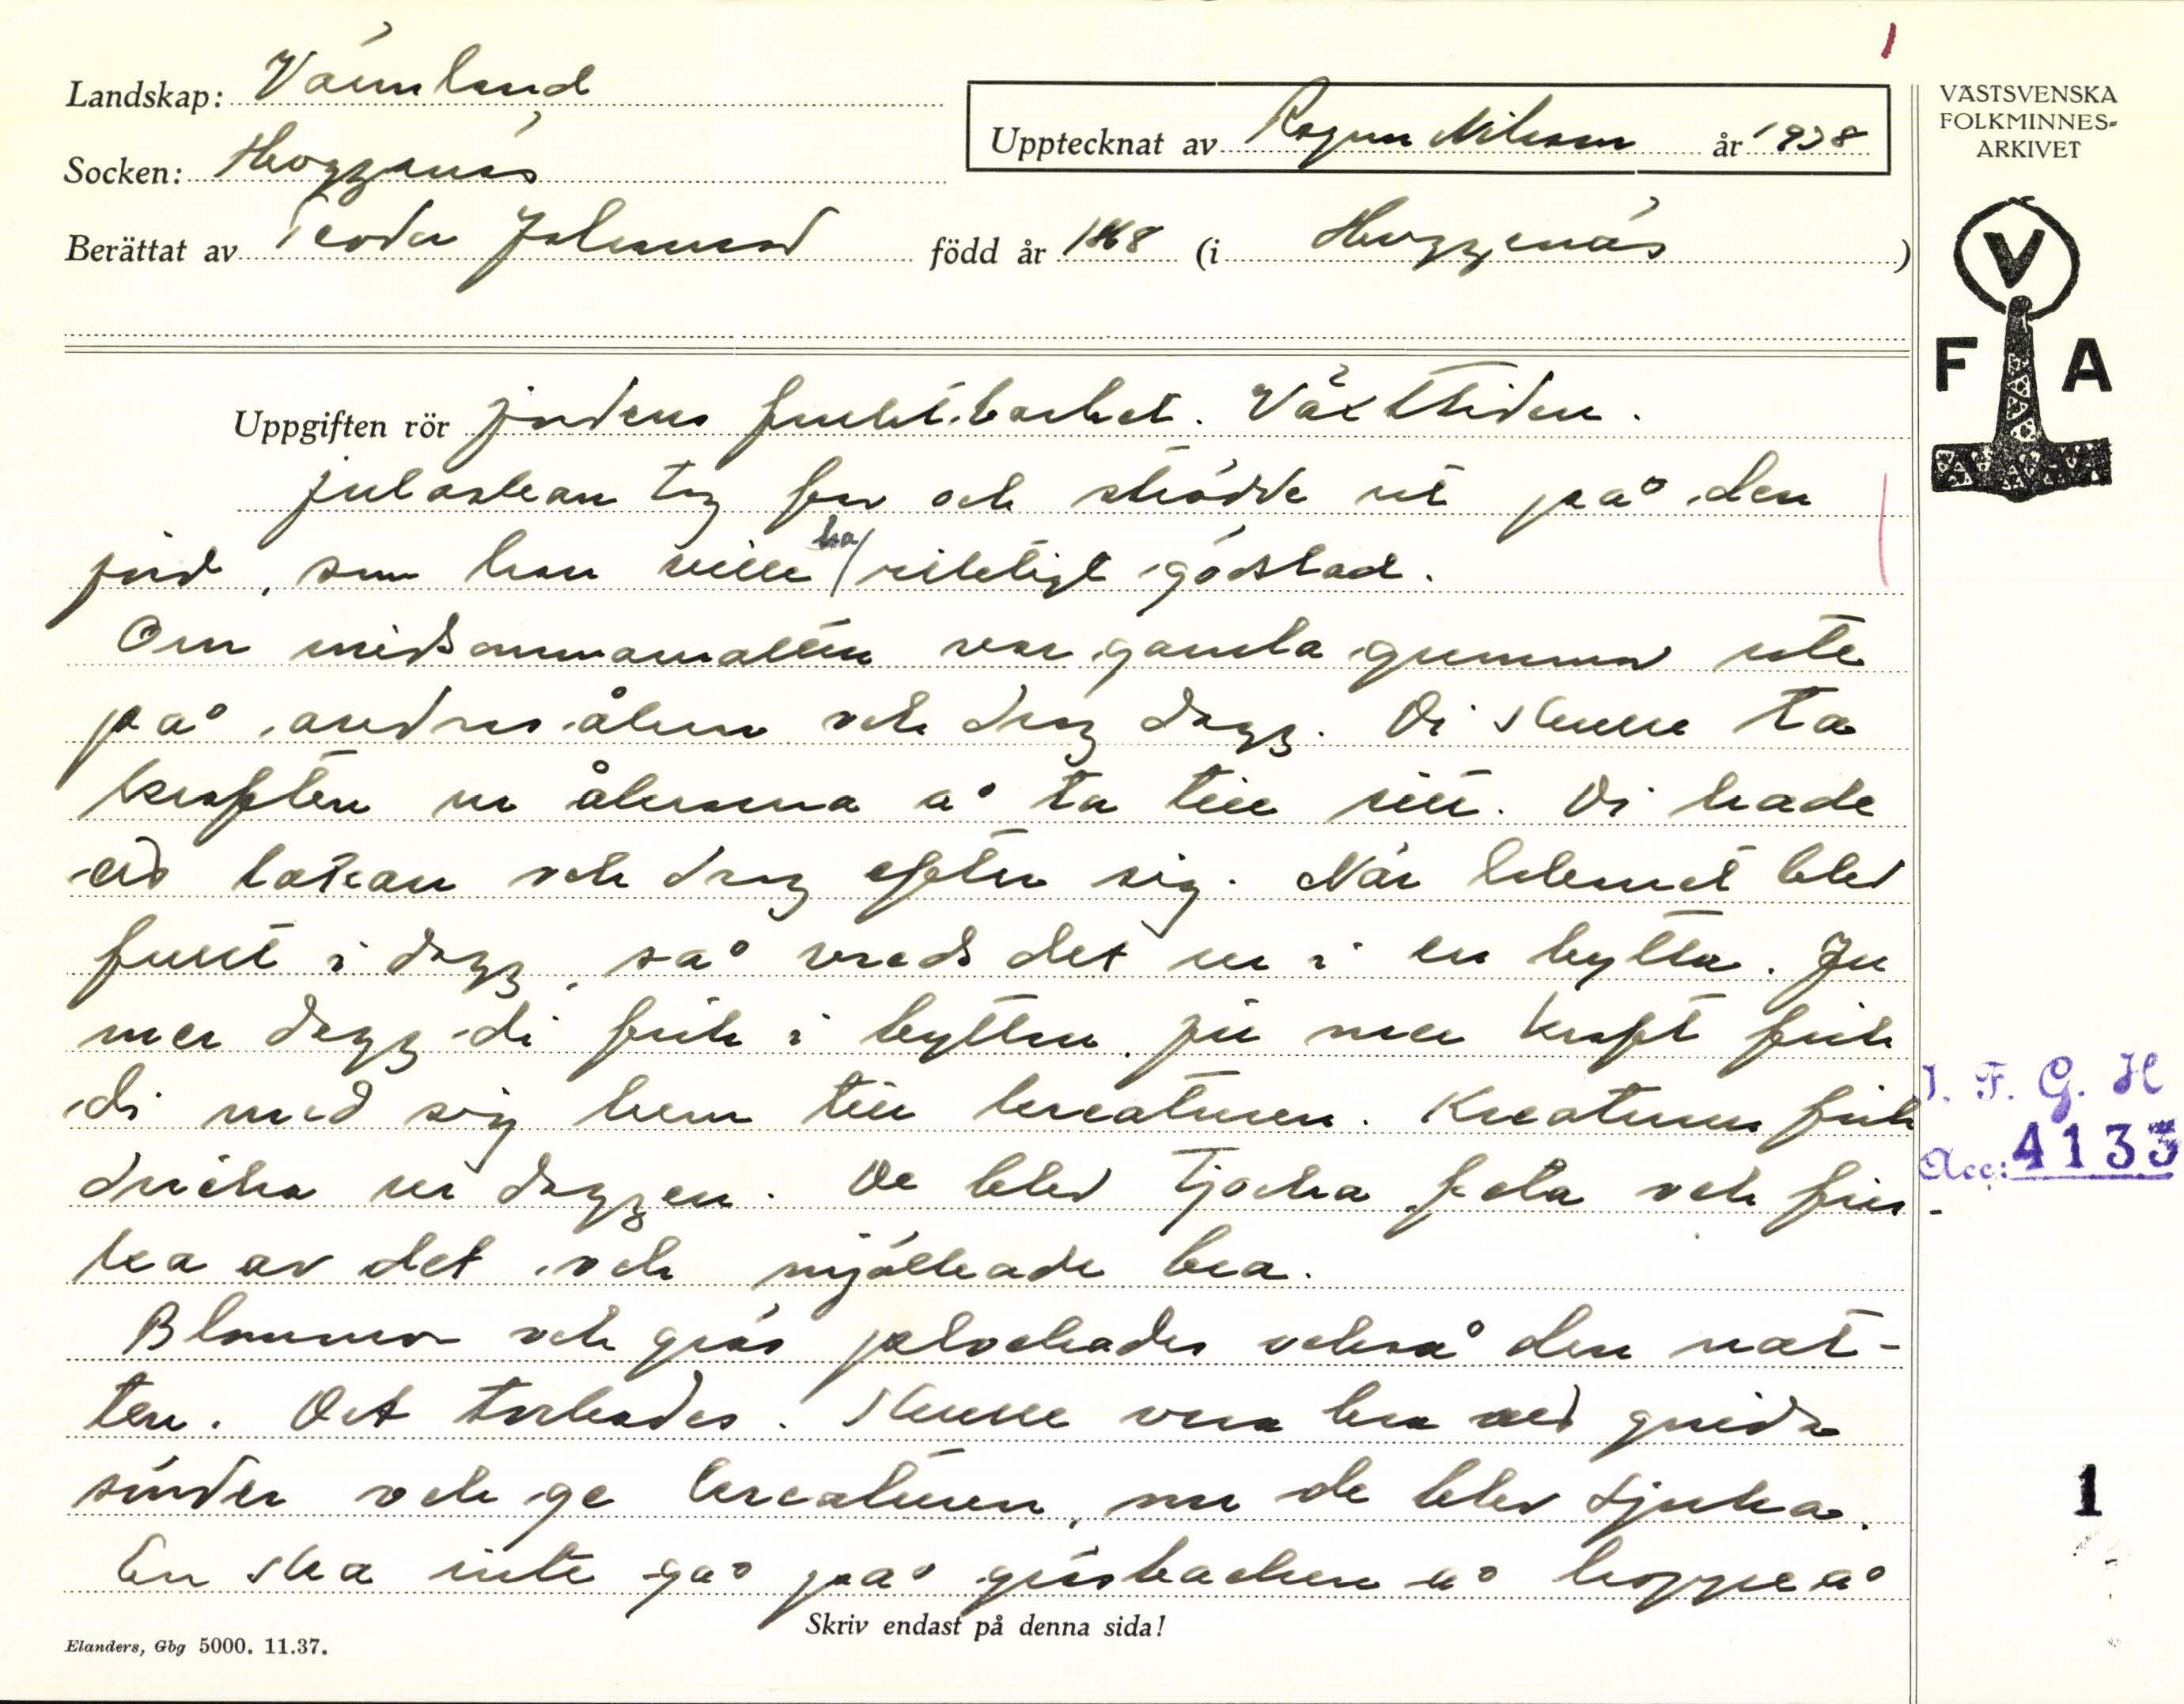 Landskap: Värmland
Upptecknat av Ragnar Nilsson år 1938
Socken: Huggenäs
Berättat av Teodor Johansson född år 1868 (i Huggenäs)
VÄSTSVENSKA
FOLKMINNES-
ARKIVET
V
F A
Uppgiften rör jordens fruktbarhet. Växttiden.
Julaskan tog han och strödde ut på den
jord, som han ville ha riktigt gödslad.
Om midsommarnatten var gamla gummor ute
på andras åkrar och drog dagg. Di skulle ta
kraften ur åkrarna å ta till sitt. Di hade
ett lakan och drog efter sig. När lakanet blev
fullt i dagg, så vreds det ur i en bytta. Ju
mer dagg di fick i byttan, ju mer kraft fick
di med sig hem till kreaturen. Kreaturen fick
dricka ur daggen. De blev tjocka feta och fris-
ka av det och mjölkade bra.
Blommor och gräs plockades också den nat-
ten. Det torkades. Skulle vara bra att gnida
sönder och ge kreaturen, när de blev sjuka.
En ska inte gå på gräsbacken å hoppe å
Skriv endast på denna sida!
Elanders, Gbg 5000. 11.37.
I. F. G. H
Acc: 4133
1